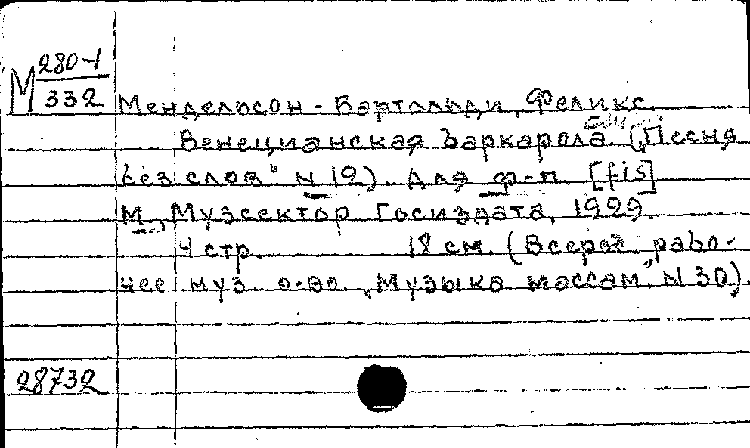 М 280-1
332
Мендельсон-Бартольди, Феликс.
Венецианская баркарола. („Песня
без слов" N 12). Для ф-п. [fis]
М., Музсектор Госиздата, 1929.
4 стр. 18 см. (Всерос. рабо-
чее муз. о-во. „Музыка массам", N 30).
28732